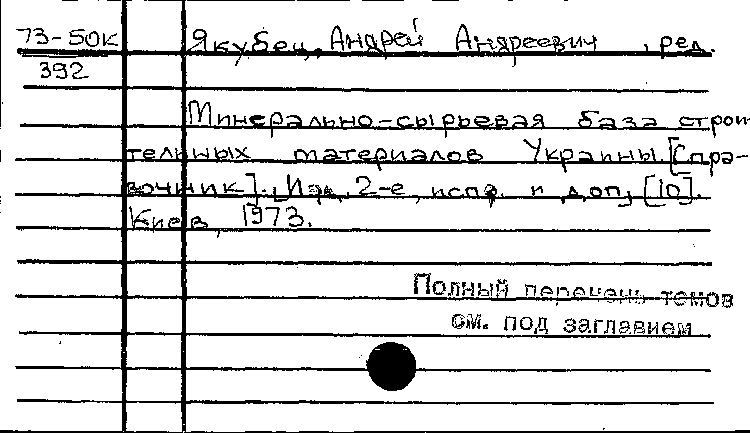 73-50К Якубец, Андрей Андреевич, ред.
392
Минерально-сырьевая база строи-
тельных материалов Украины. [Спра-
вочник]. Изд. 2-е, испр. и доп.
Киев, 1973.
Полный перечень томов
см. под заглавием